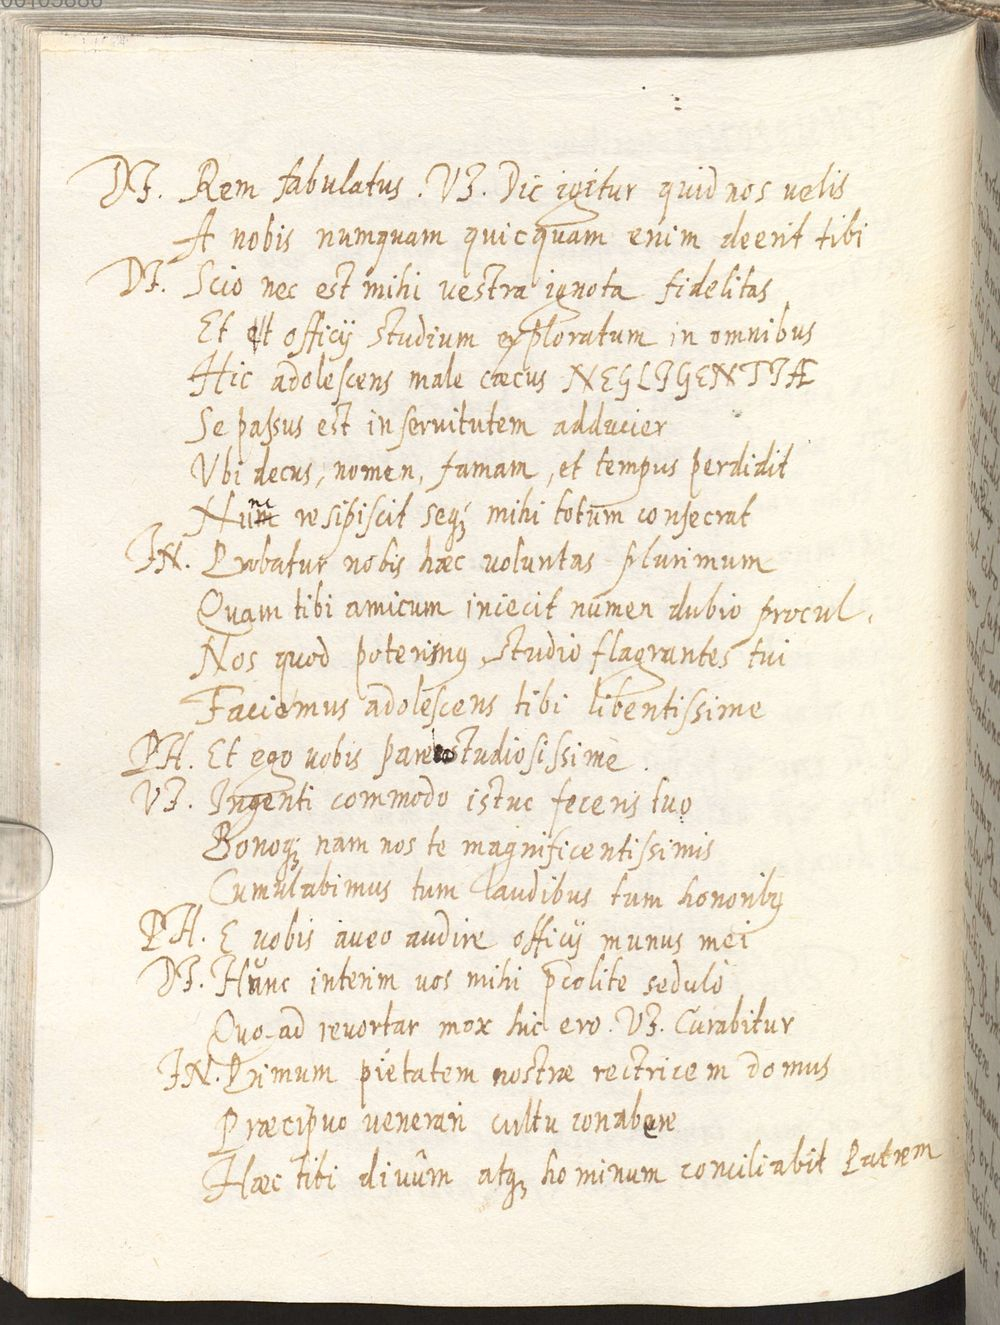 DI. Rem fabulatus. VI. Dic igitur quid nos uelis
A nobis numquam quicquam enim deerit tibi
DI. Scio nec est mihi uestra ignota fidelitas
Et officij studium exploratum in omnibus
Hic adolescens male cæcus NEGLIGENTIÆ
Se passus est in seruitutem adducier
Vbi decus, nomen, famam, et tempus perdidit
Nunc resipiscit seq; mihi totum consecrat
IN. Probatur nobis hæc uoluntas plurimum
Quam tibi amicum iniecit numen dubio procul.
Nos quod poterimus, studio flagrantes tui
Faciemus adolescens tibi libentissime
PH. Et ego uobis parebo studiosissime.
VI. Ingenti commodo istuc feceris tuo
Bonoq; nam nos te magnificentissimis
Cumulabimus tum laudibus tum honoribus
PH. E uobis aueo audire officij munus mei
DI. Hunc interim uos mihi p̄colite sedulò
Quo-ad reuortar mox hic ero. VI. Curabitur
IN. Primum pietatem nostræ rectricem domus
Præcipuo uenerari cultu conabere
Hæc tibi diuûm atq; hominum conciliabit Patrem